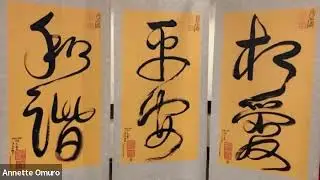 和諧
平安
相愛
Annette Omuro